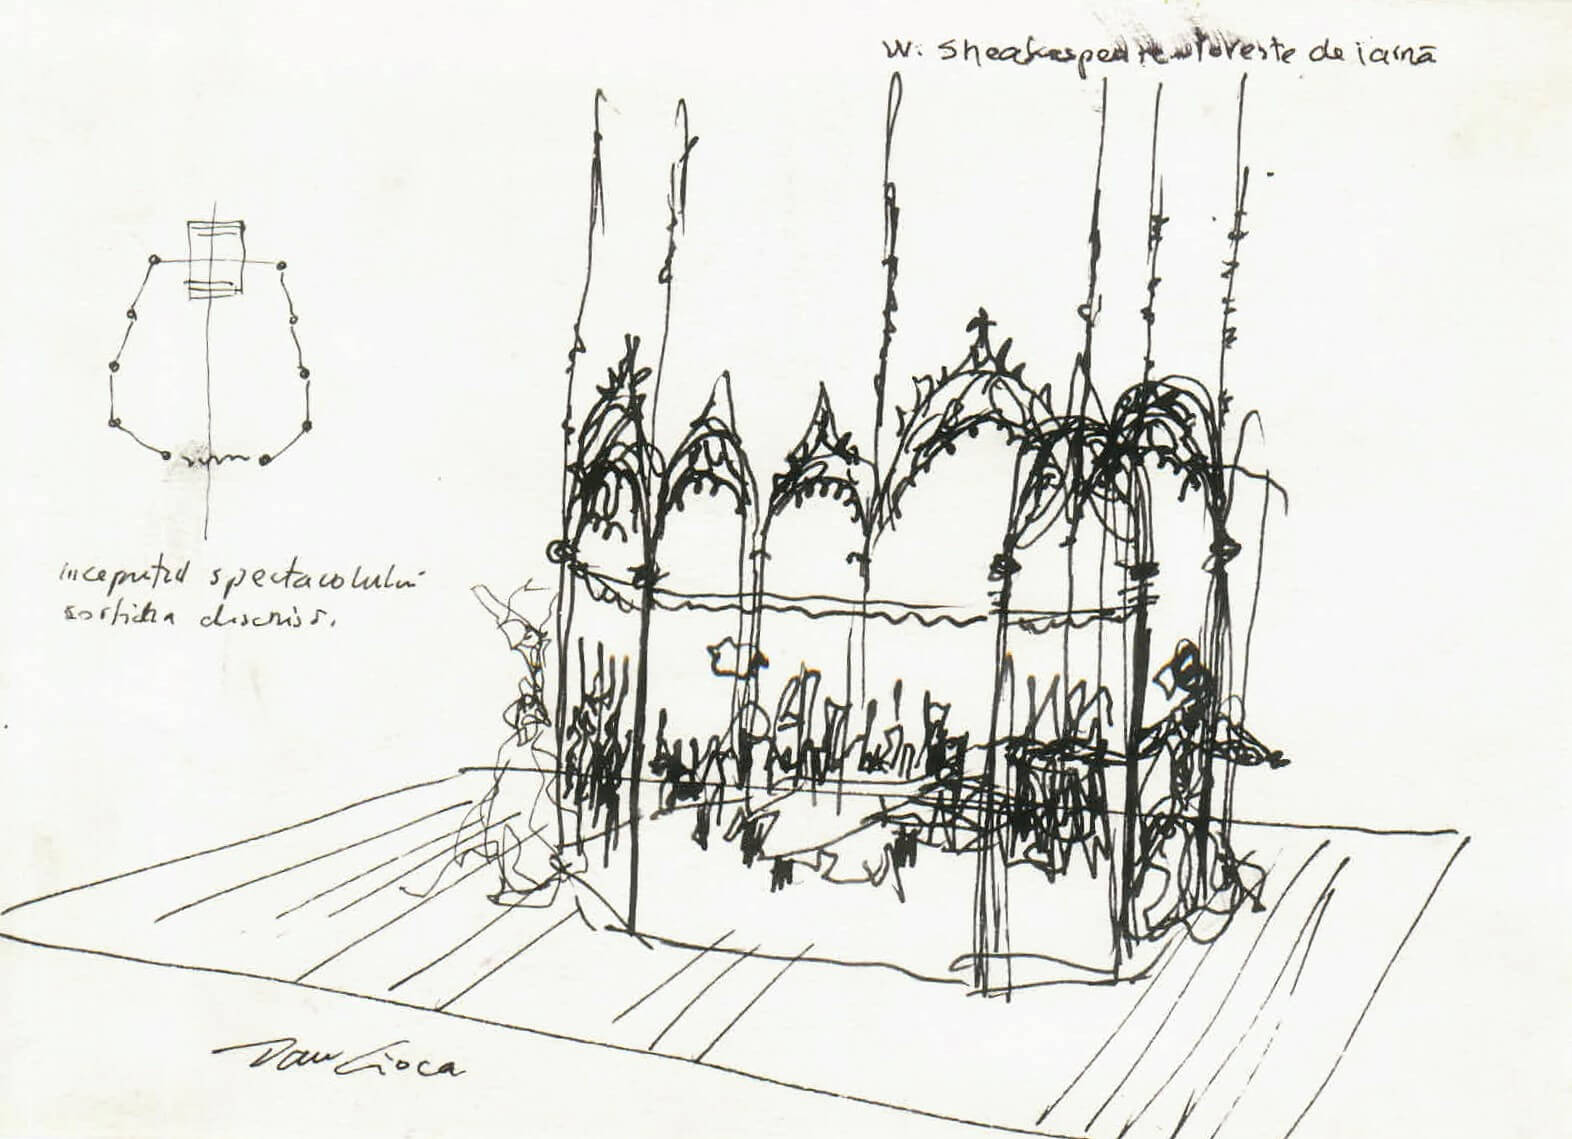 W. Sheakespeare Poveste de iarnă
începutul spectacolului
cortina deschisă.
Dan Cioca